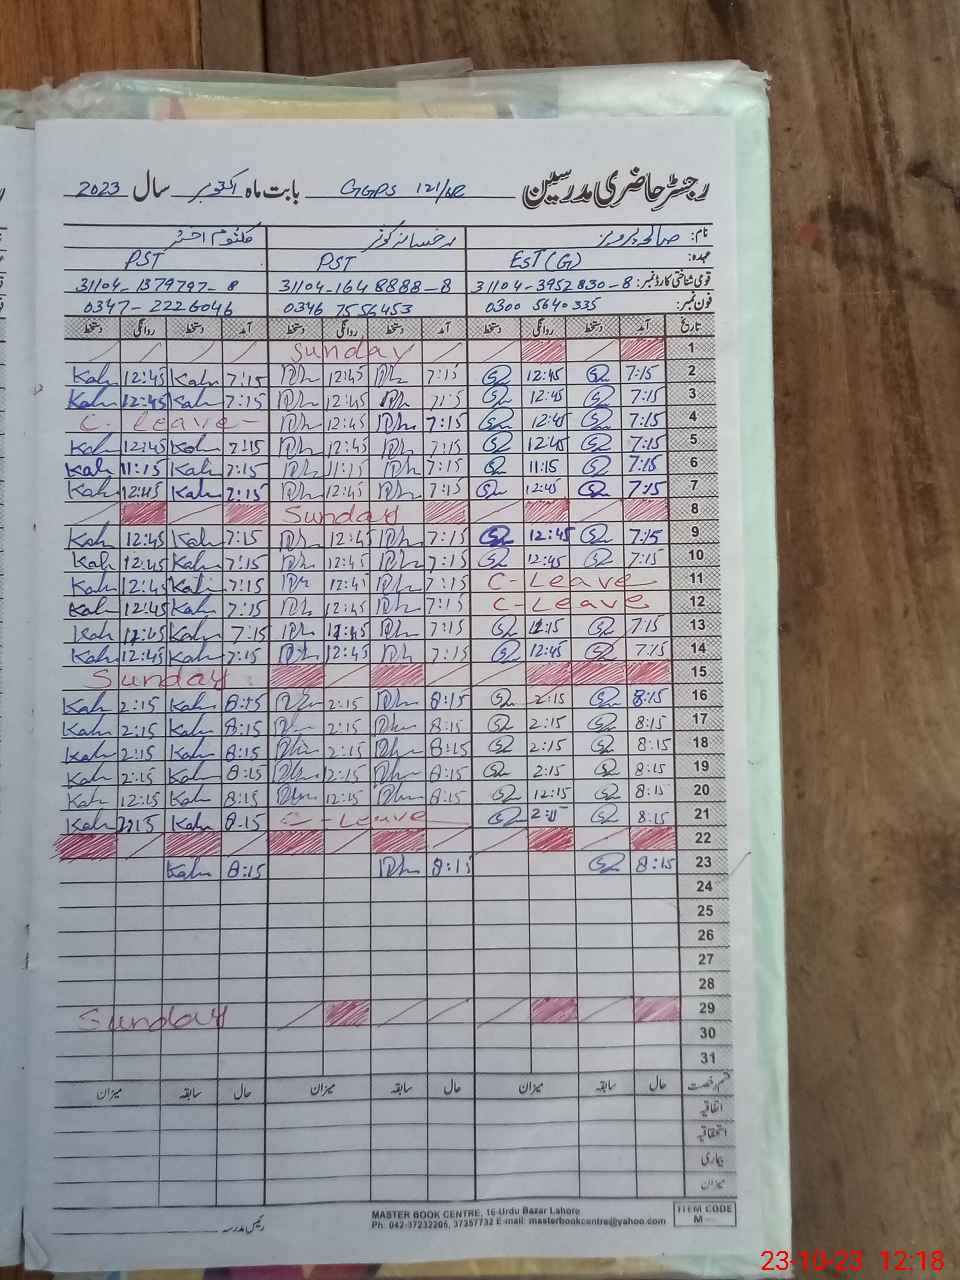 رجسٹر حاضری مدرسین GGPS 121/6R بابت ماہ اکتوبر سال 2023
نام: صالحہ پروین رخسانہ کوثر کلثوم اختر
عہدہ: EST (G) PST PST
قومی شناختی کارڈ نمبر: 31104-3952830-8 31104-1648888-8 31104-1379797-8
فون نمبر: 0300 5640335 0346 7556453 0347-2226046
تاریخ آمد دستخط روانگی دستخط آمد دستخط روانگی دستخط آمد دستخط روانگی دستخط
1 Sunday
2 7:15 12:45 7:15 Rh 12:45 Rh 7:15 Kah 12:45 Kah
3 7:15 12:45 Rh 12:45 Rh 7:15 Kah 12:45 Kah
4 7:15 12:45 7:15 Rh 12:45 Rh C-Leave
5 7:15 12:45 7:15 Rh 12:45 Rh 7:15 Kah 12:45 Kah
6 7:15 11:15 7:15 Rh 11:15 Rh 7:15 Kah 11:15 Kah
7 7:15 12:45 7:15 Rh 12:45 Rh 7:15 Kah 12:45 Kah
8 Sunday
9 7:15 12:45 7:15 Rh 12:45 Rh 7:15 Kah 12:45 Kah
10 7:15 12:45 7:15 Rh 12:45 Rh 7:15 Kah 12:45 Kah
11 C-Leave 7:15 Rh 12:45 Rh 7:15 Kah 12:45 Kah
12 C-Leave 7:15 Rh 12:45 Rh 7:15 Kah 12:45 Kah
13 7:15 12:15 7:15 Rh 12:45 Rh 7:15 Kah 12:45 Kah
14 7:15 12:45 7:15 Rh 12:45 Rh 7:15 Kah 12:45 Kah
15 Sunday
16 8:15 2:15 8:15 Rh 2:15 Rh 8:15 Kah 2:15 Kah
17 8:15 2:15 8:15 Rh 2:15 Rh 8:15 Kah 2:15 Kah
18 8:15 2:15 8:15 Rh 2:15 Rh 8:15 Kah 2:15 Kah
19 8:15 2:15 8:15 Rh 12:15 Rh 8:15 Kah 2:15 Kah
20 8:15 12:15 8:15 Rh 12:15 Rh 8:15 Kah 12:15 Kah
21 8:15 C-Leave 8:15 Kah 2:15 Kah
22
23 8:15 8:15 Rh 8:15 Kah
24
25
26
27
28
29 Sunday
30
31
قسم رخصت حال سابقہ میزان حال سابقہ میزان حال سابقہ میزان
اتفاقیہ
استحقاقیہ
بیماری
میزان
رئیس مدرسہ
MASTER BOOK CENTRE, 16-Urdu Bazar Lahore
Ph: 042-37232205, 37357732 E-mail: masterbookcentre@yahoo.com
ITEM CODE
M
23-10-23 12:18